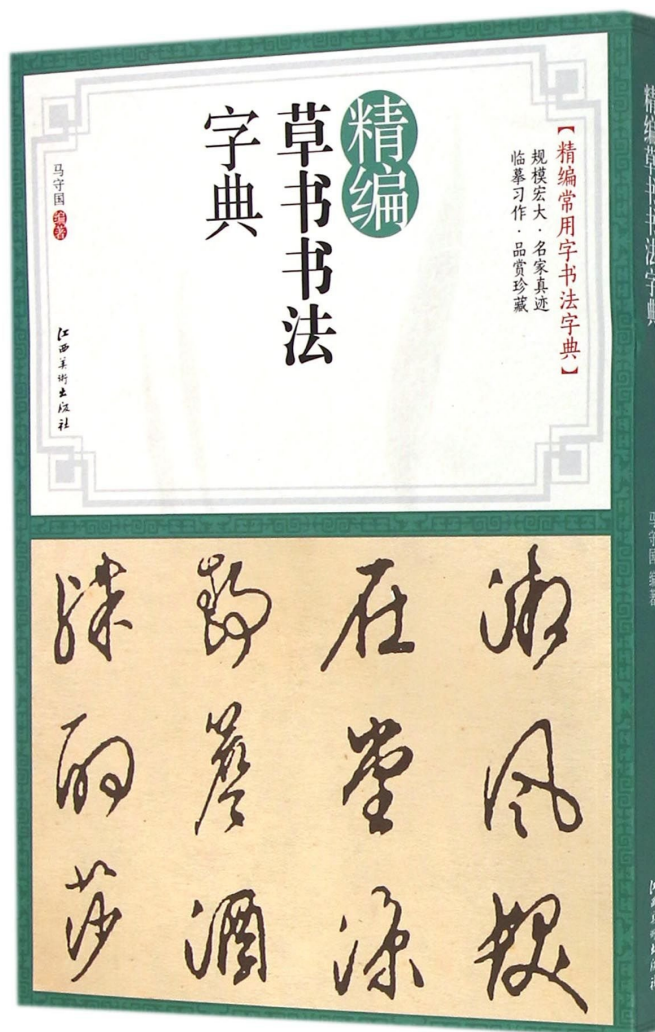 【精编常用字书法字典】
规模宏大·名家真迹
临摹习作·品赏珍藏
精编
草书书法
字典
马守国 编著
江西美術出版社
風
在堂深
精编草书书法字典
马守国 编著
江西美術出版社